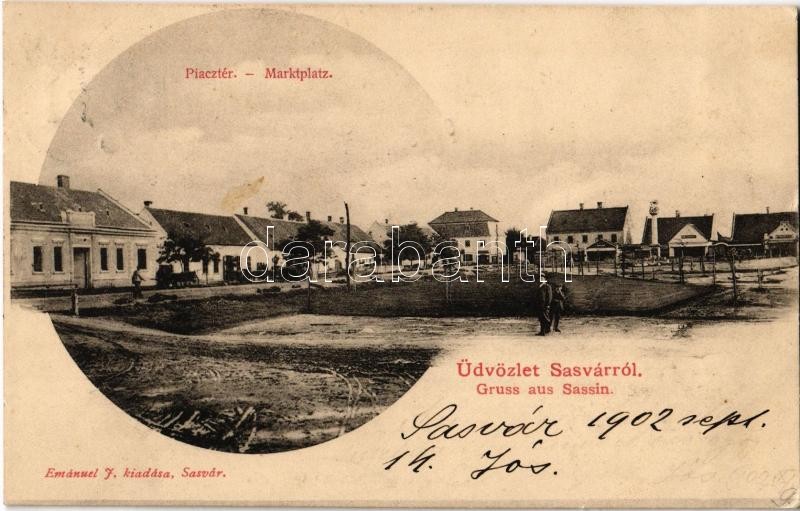 Piacztér. – Marktplatz.
darabanth.com
Üdvözlet Sasvárról.
Gruss aus Sassin.
Sasvár 1902 sept.
14. Jós.
Emánuel J. kiadása, Sasvár.